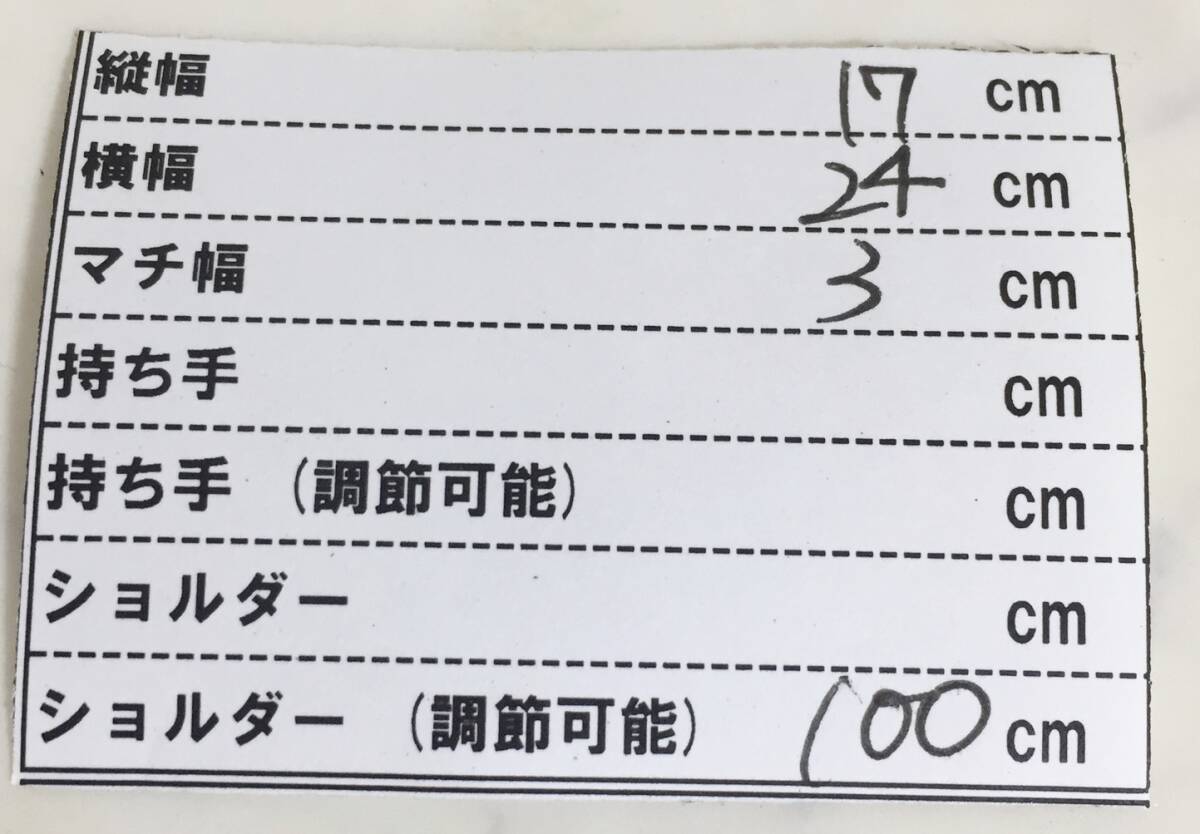 縦幅 17 cm
横幅 24 cm
マチ幅 3 cm
持ち手 cm
持ち手 (調節可能) cm
ショルダー cm
ショルダー (調節可能) 100 cm